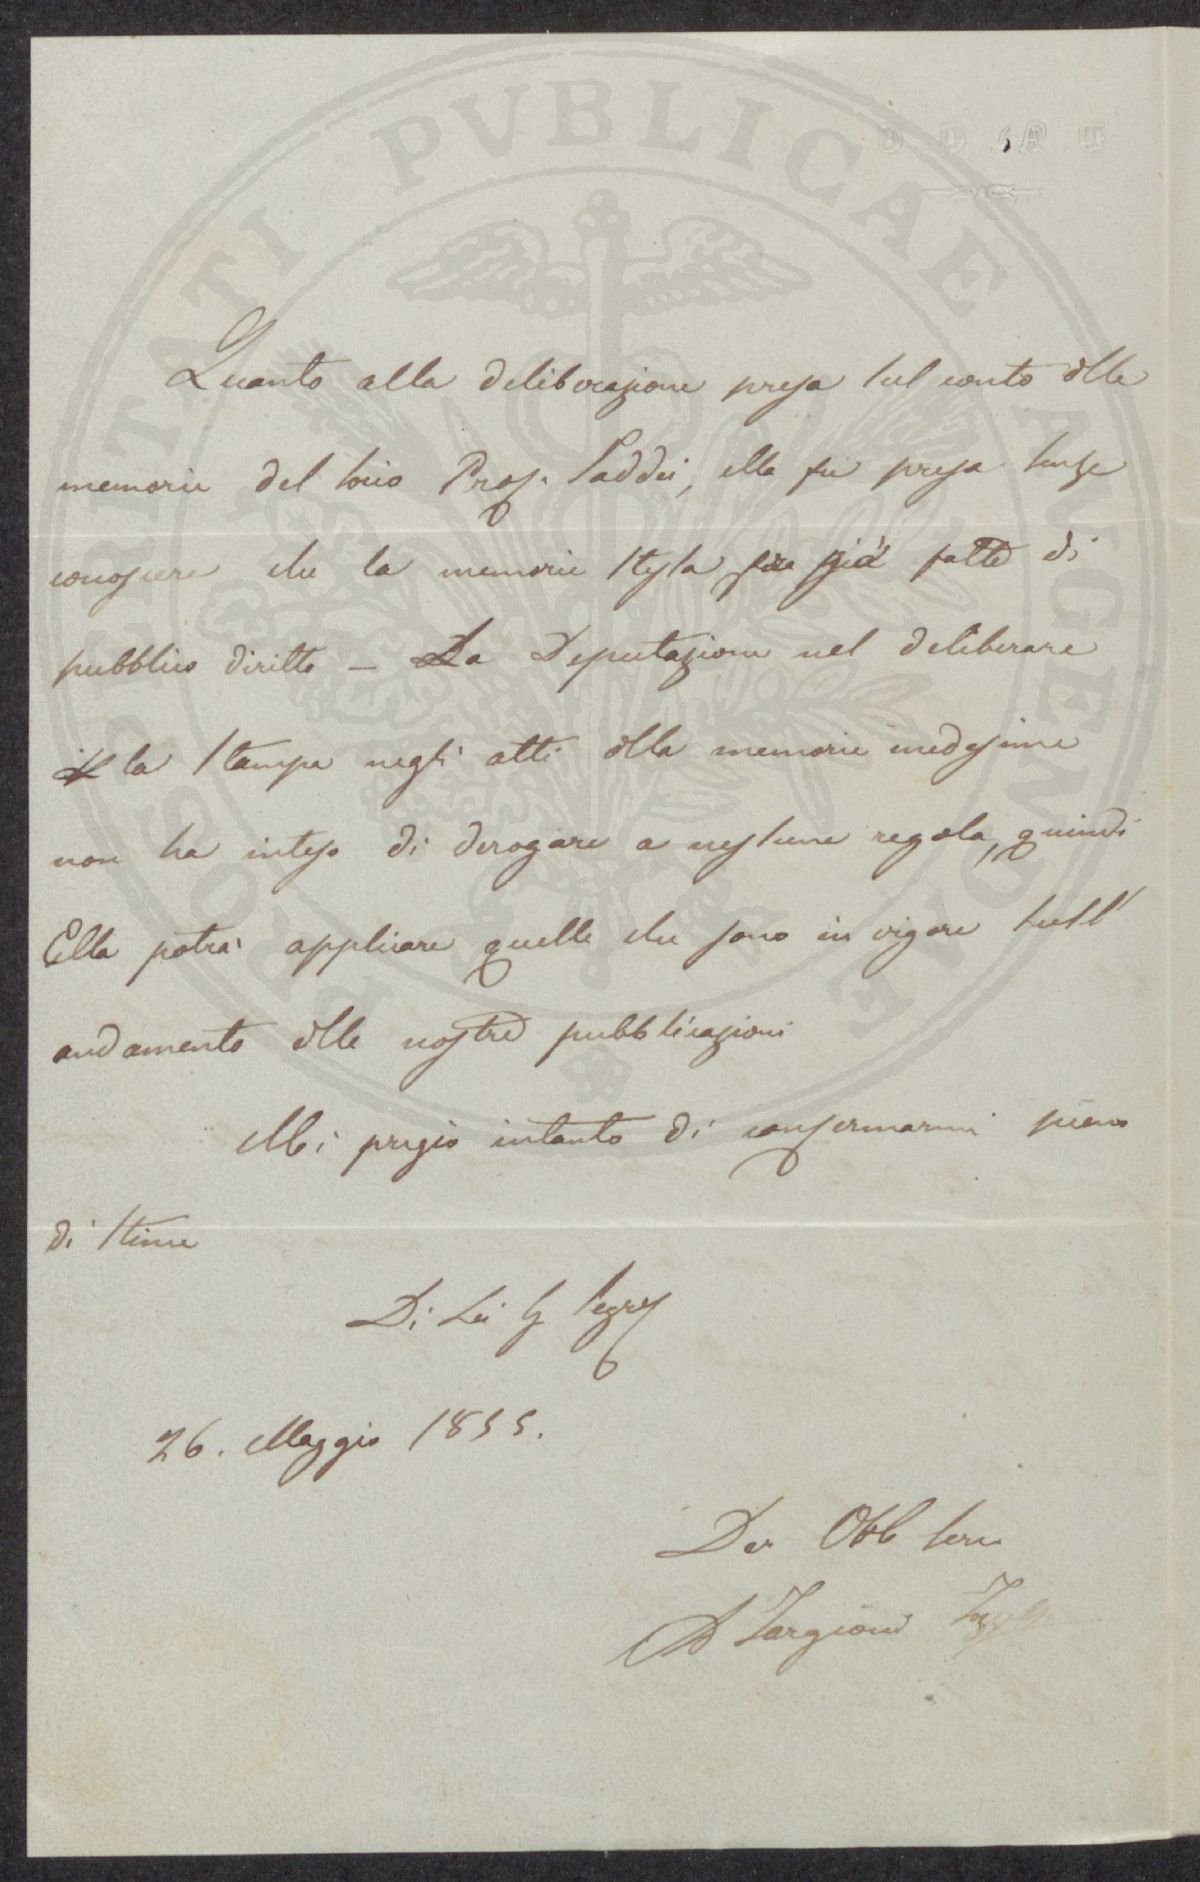 PROSPERITATI PVBLICAE AVGENDAE
Quanto alla deliberazione presa sul conto della
memoria del socio Prof. Taddei, ella fu presa senza
conoscere che la memoria stessa fu già fatta di
pubblico diritto – La Deputazione nel deliberare
la stampa negli atti della memoria medesima
non ha inteso di derogare a nessuna regola, quindi
Ella potrà applicare quelle che sono in vigore sull'
andamento delle nostre pubblicazioni
Mi pregio intanto di confermarmi pieno
di stima
Di Lei Sig Segr
26. Maggio 1855.
Dev Obb Serv
A Targioni